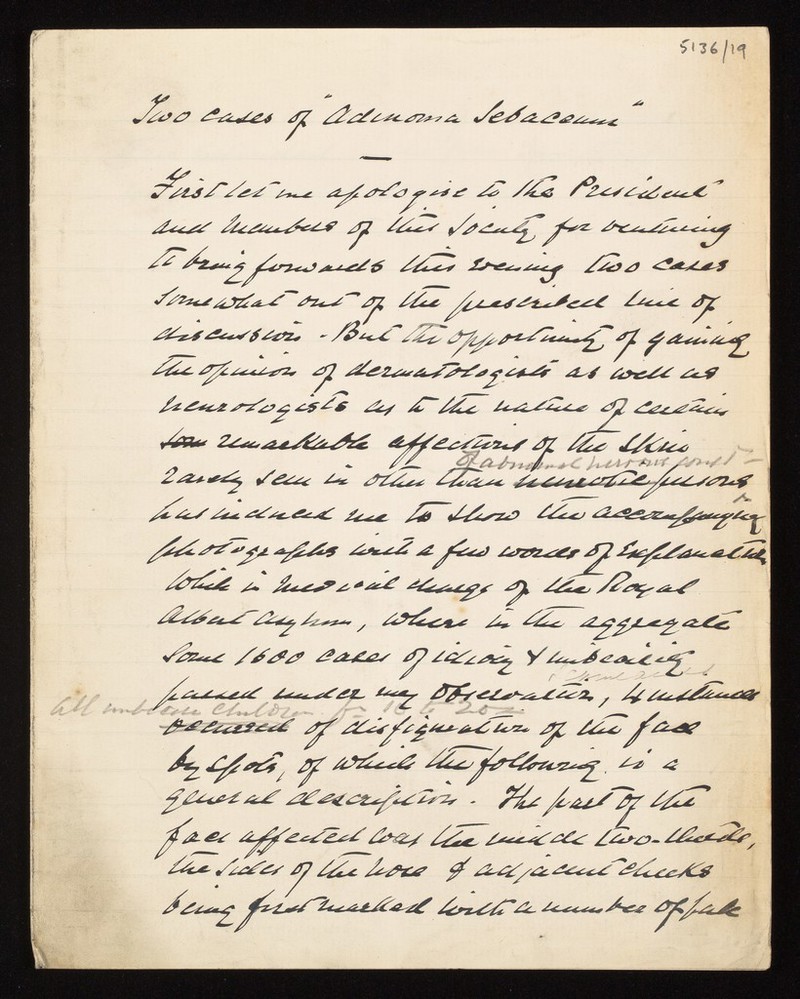 5136/19
Two cases of "Adenoma Sebaceum"
First let me apologise to the President
and Members of this Society for venturing
to bring forwards this evening two cases
somewhat out of the prescribed line of
discussion - But the opportunity of gaining
the opinion of dermatologists as well as
neurologists as to the nature of certain
som remarkable affections of the skin
of abnormal nervous const-
rarely seen in other than neurotic persons
has induced me to show the accompanying
photographs with a few words of explanation
While in Medical charge of the Royal
Albert Asylum, where in the aggregate
some 1600 cases of idiocy & imbecility
passed under my observation, 4 instances
all imbecile children
occurred of disfiguration of the face
by spots, of which the following is a
general description. The part of the
face affected was the middle two-thirds,
the sides of the nose & adjacent cheeks
being first marked with a number of pale